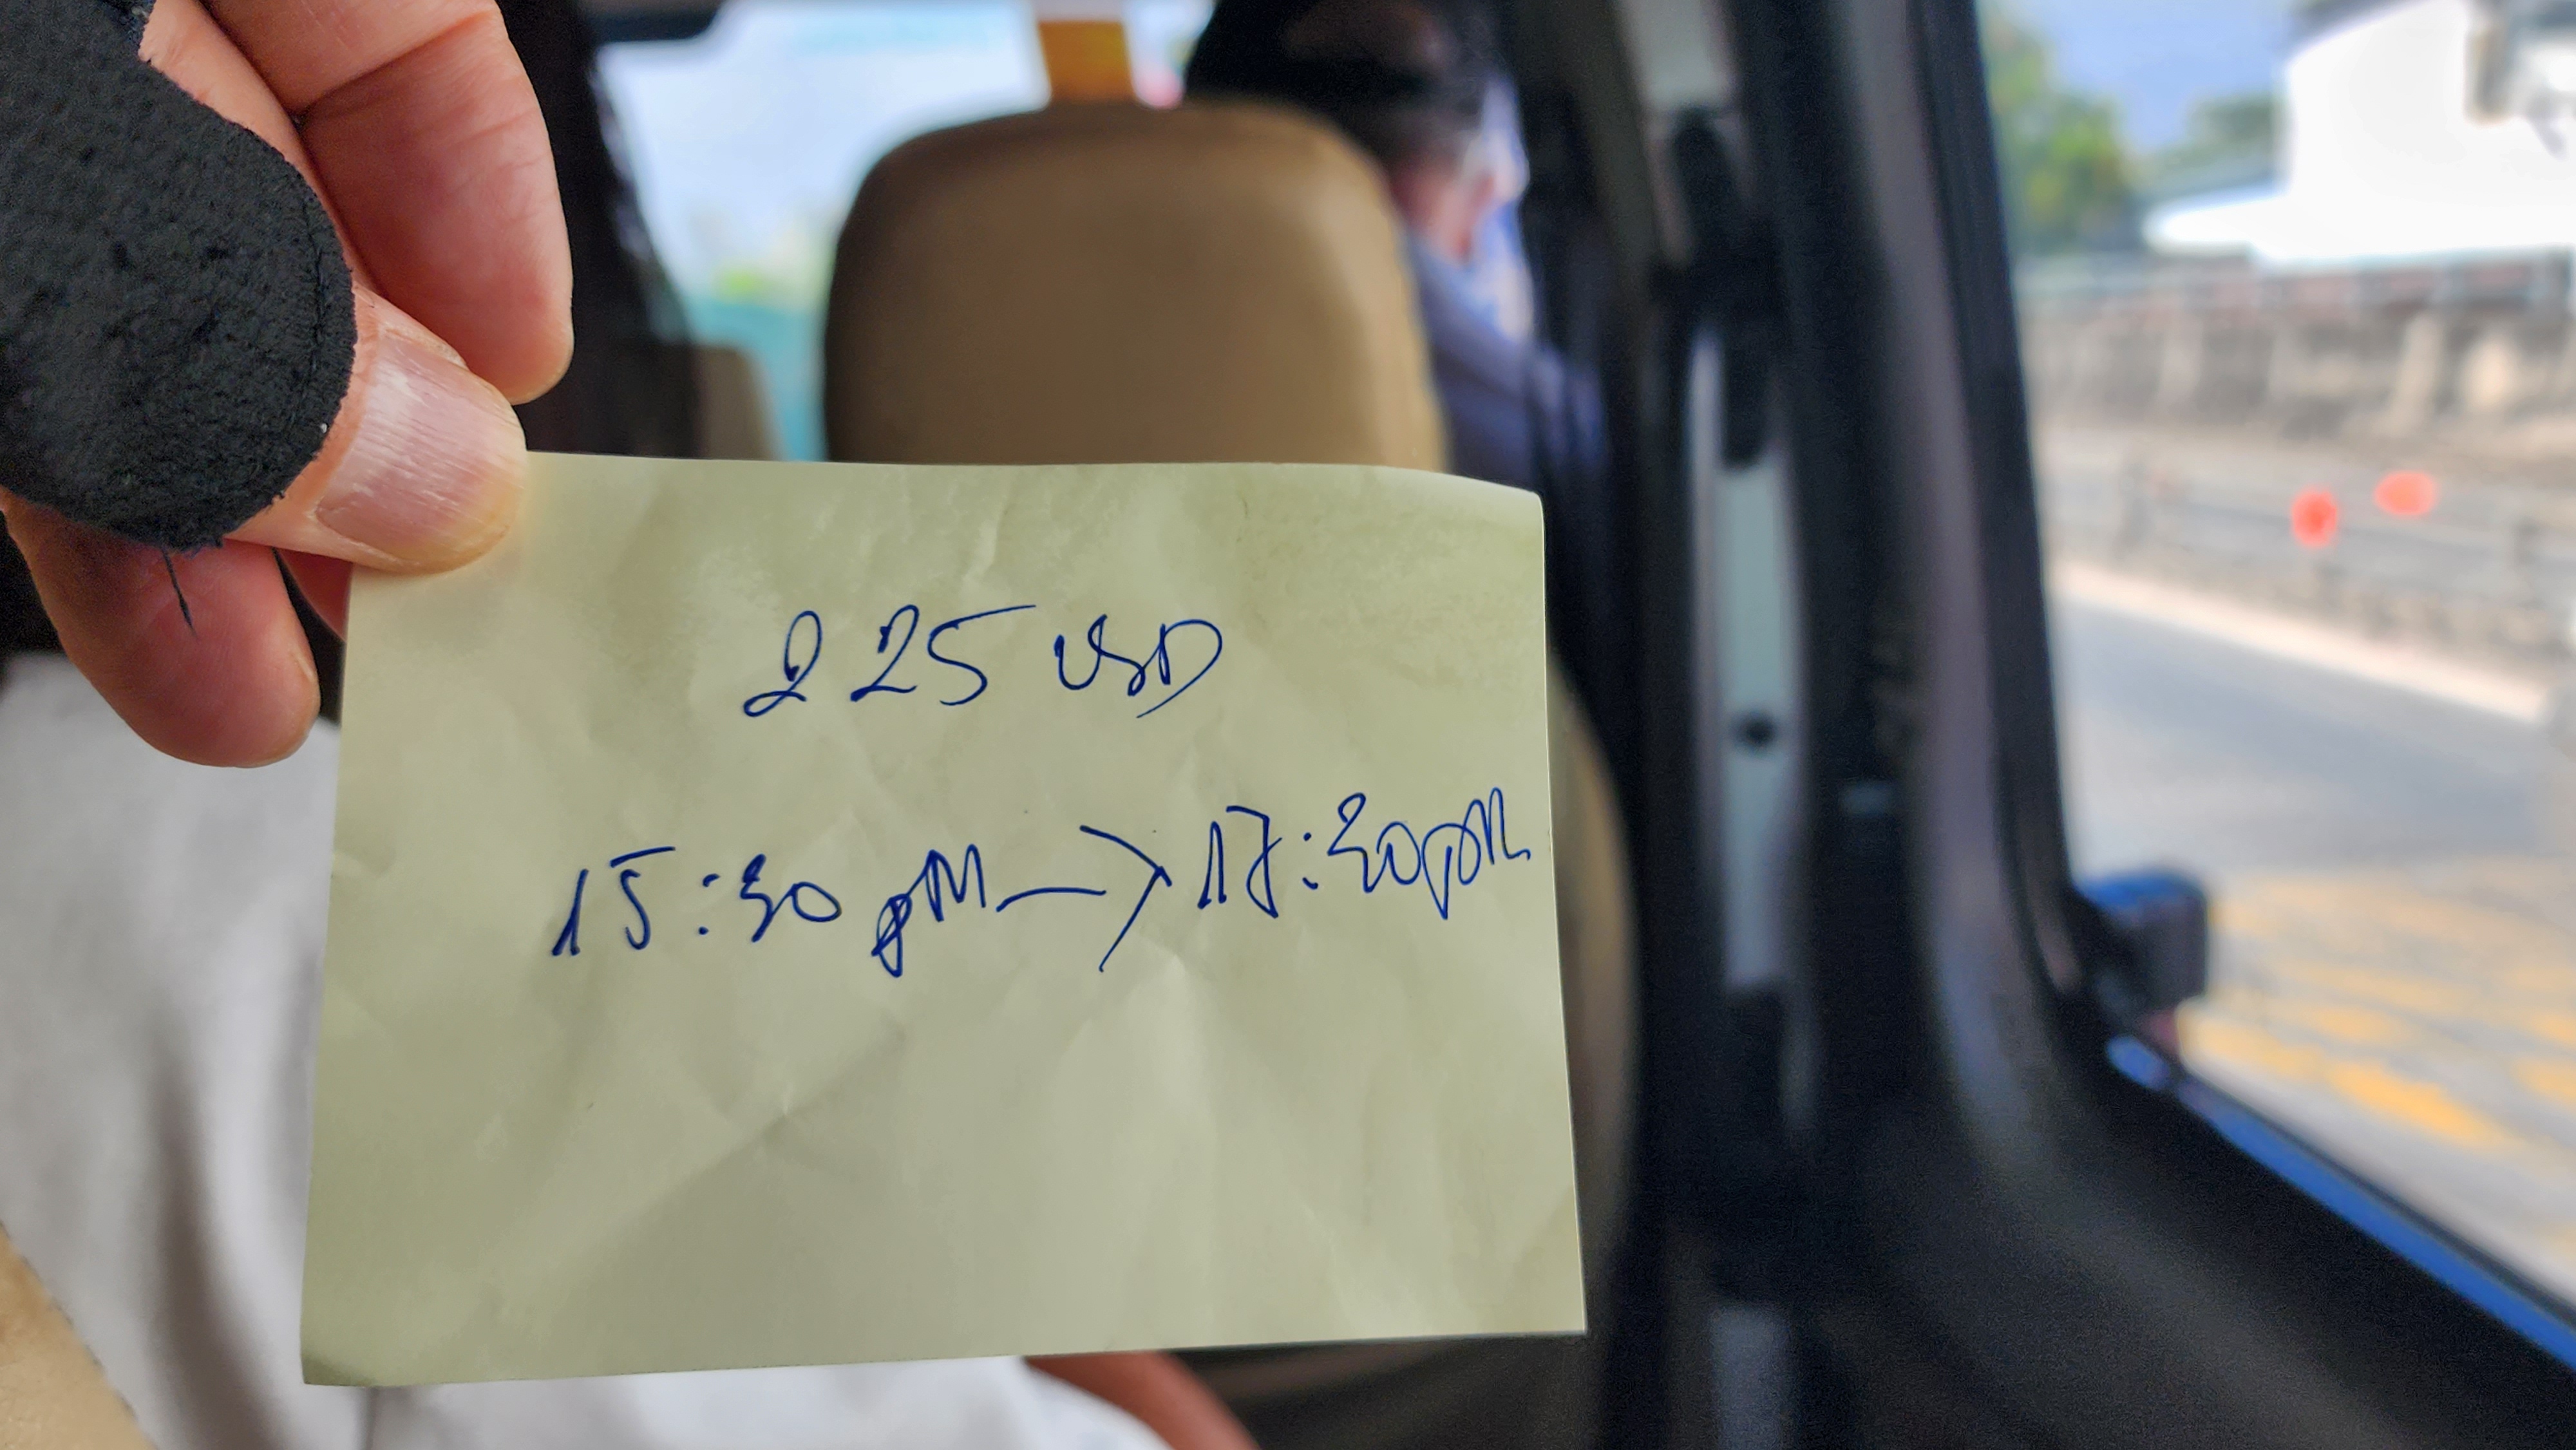 225 USD
15:30 pM → 17:30pM